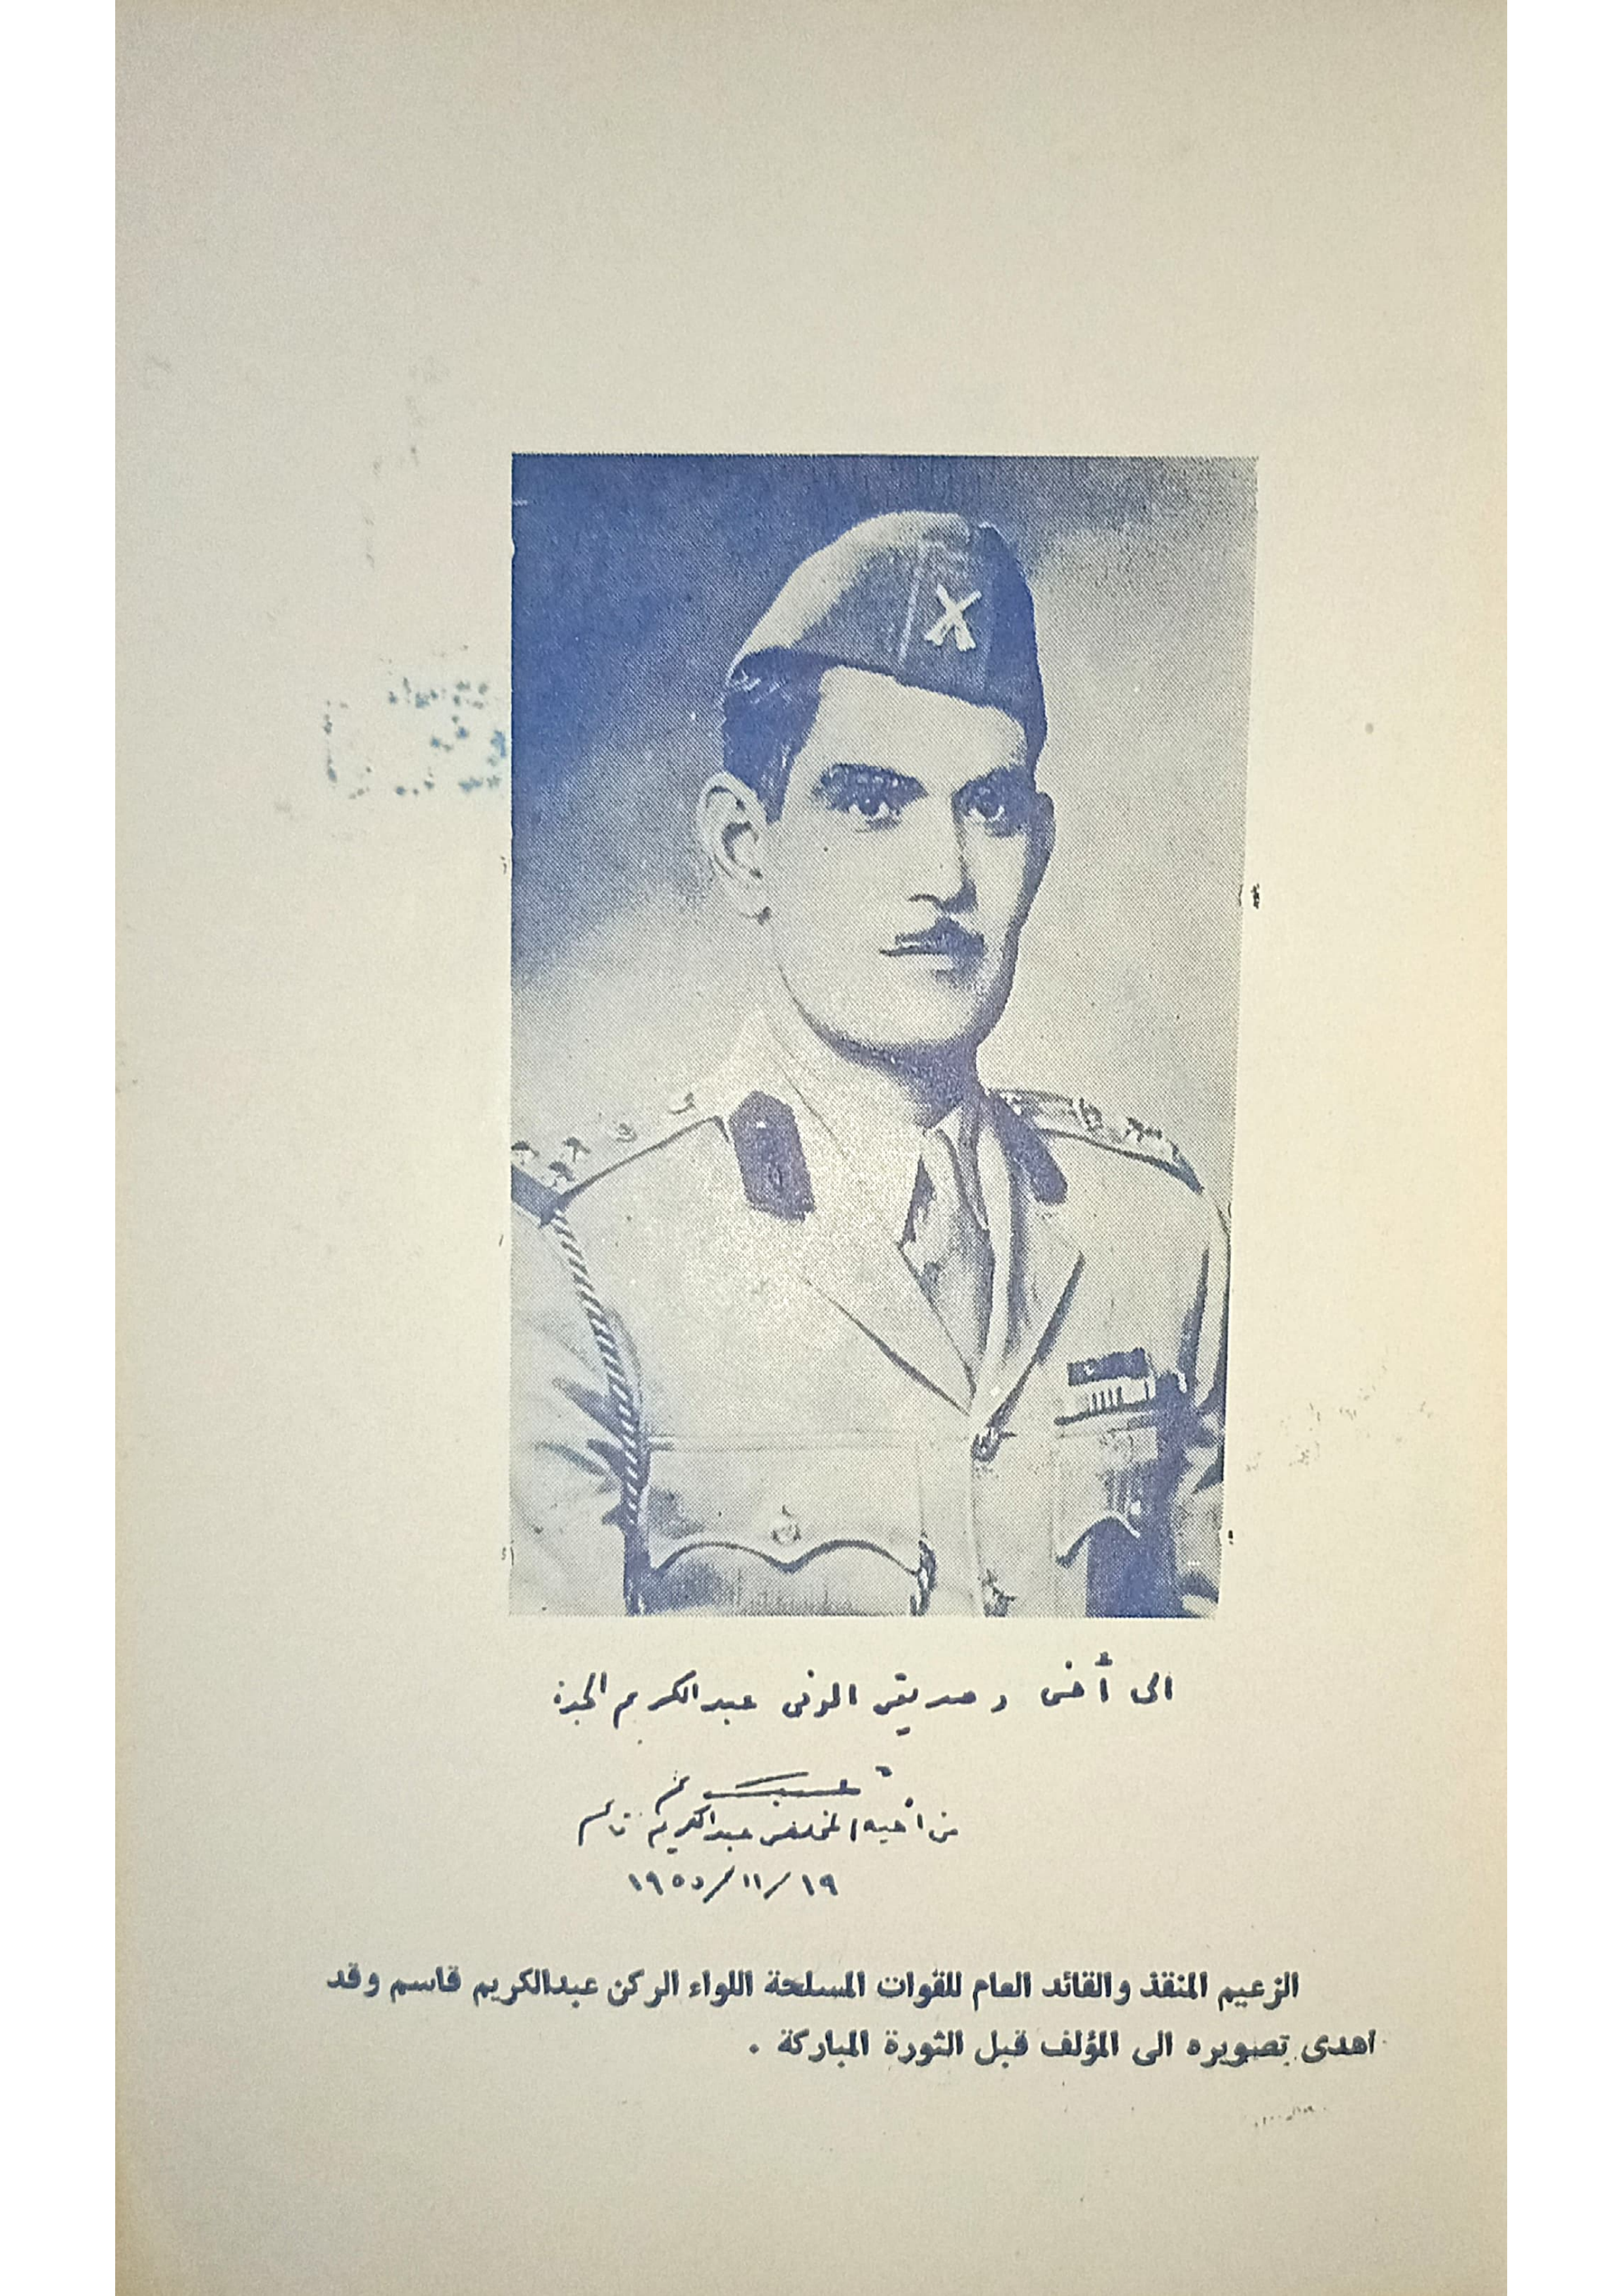 الى أخي وصديقي الوفي عبدالكريم الجدة
من أخيه المخلص عبدالكريم قاسم
١٩/١١/١٩٥٥
الزعيم المنقذ والقائد العام للقوات المسلحة اللواء الركن عبدالكريم قاسم وقد
اهدى تصويره الى المؤلف قبل الثورة المباركة .